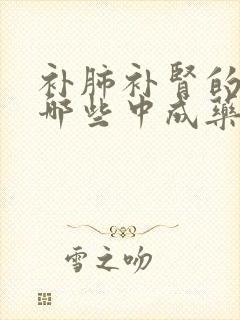 补肺补肾的
哪些中成药
雪之吻